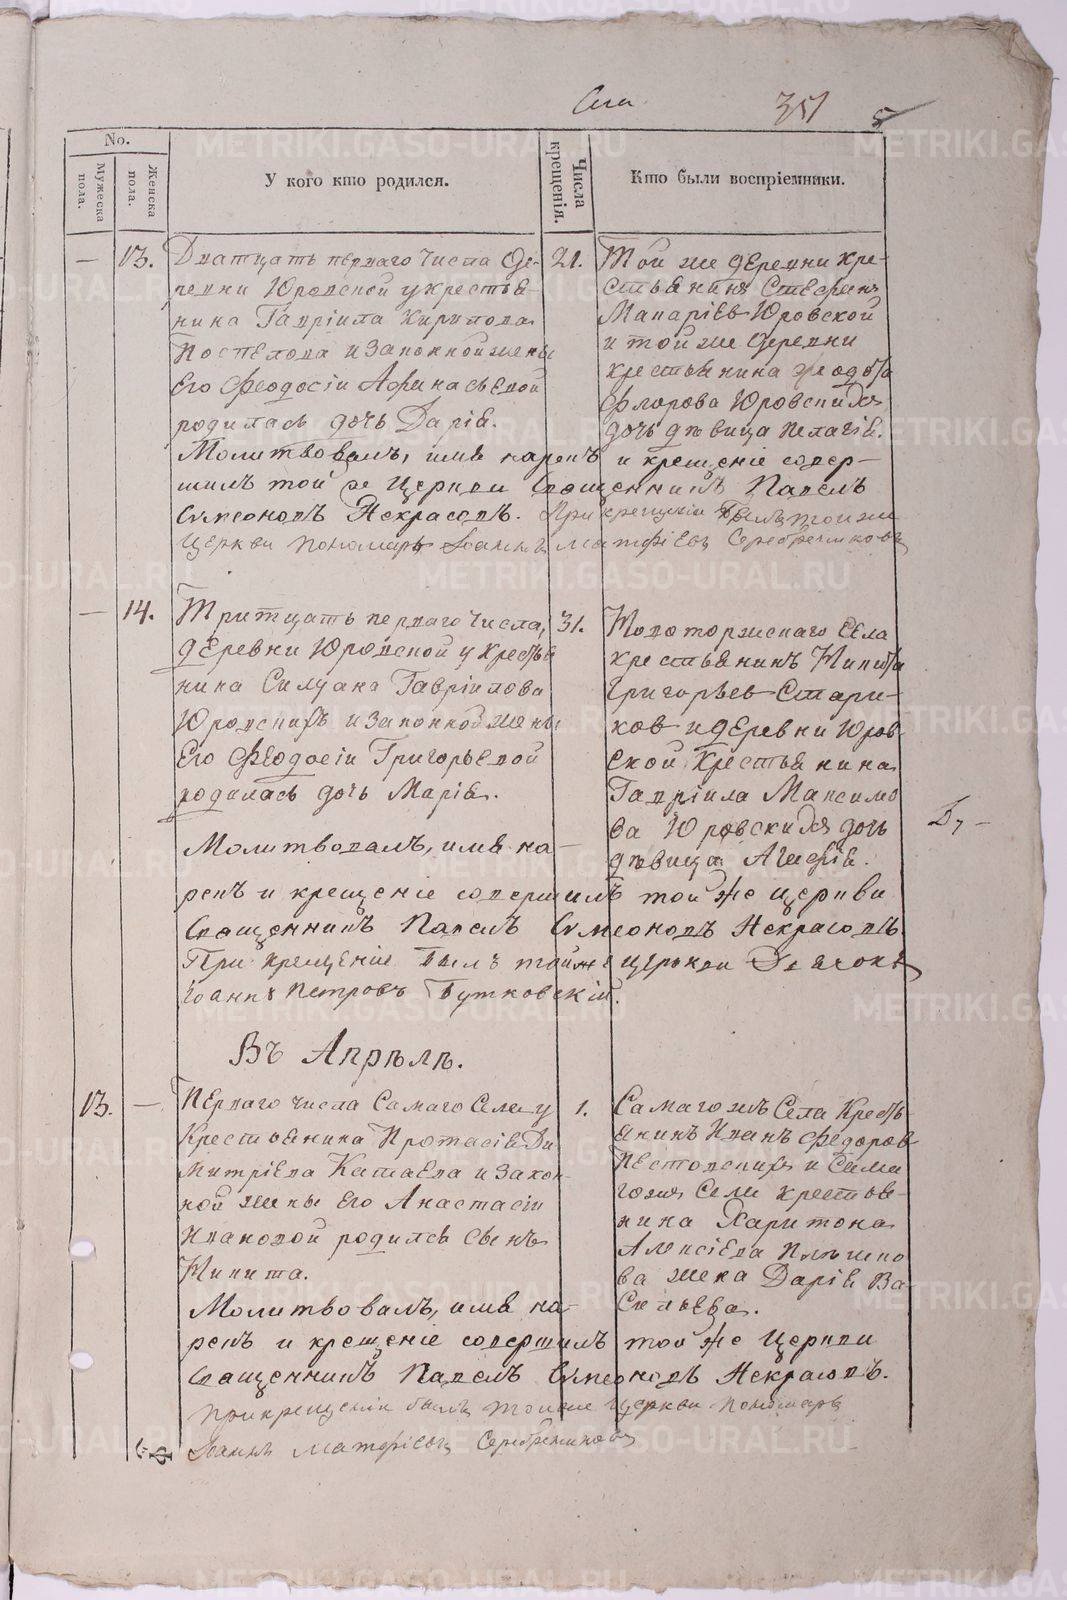 351
5
No.
Мужеска пола.
Женска пола.
У кого кто родился.
Числа крещенія.
Кто были воспріемники.
— 13.
Дватцать перваго числа де-
ревни Юровской у крестья-
нина Гавріила Кирилова
Поспелова и законной жены
его Феодосіи Афинасьевой
родилась дочь Дарія.
21.
Той же деревни кре-
стьянинъ Стефанъ
Макаріевъ Юровской
и той же деревни
крестьянина Феодота
Флорова Юровскихъ
дочь дѣвица Пелагія.
Молитвовалъ, имя нарекъ и крещеніе совер-
шилъ той же Церкви Священникъ Павелъ
Сѵмеоновъ Некрасовъ. При крещеніи былъ тоя же
Церкви пономарь Іоаннъ Матфіевъ Серебрениковъ
— 14.
Тритцать перваго числа,
деревни Юровской у кресть я
нина Силуана Гавріилова
Юровскихъ и законной жены
его Феодосіи Григорьевой
родилась дочь Марія.
31.
Новоторжскаго села
крестьянинъ Никита
Григорьевъ Стари-
ковъ и деревни Юров
ской крестьянина
Гавріила Максимо
ва Юровскихъ дочь
дѣвица Агафія.
Молитвовалъ, имя на-
рекъ и крещеніе совершилъ той же церкви
Священникъ Павелъ Сѵмеоновъ Некрасовъ.
При крещеніе былъ той же церкви Дьячокъ
Іоаннъ Петровъ Бутковскій.
Въ Апрѣлѣ.
13. —
Перваго числа Самаго Села у
Крестьянина Протасія Ди
митріева Катаева и закон-
ной жены его Анастасіи
Ивановой родился сынъ
Никита.
1.
Самагожъ Села Кресть-
янинъ Иванъ Федоровъ
Пестовскихъ и Сама
гожъ Села крестья-
нина Харитона
Алексіева Плѣшко
ва жена Дарія Ва
сильева.
Молитвовалъ, имя на-
рекъ и крещеніе совершилъ той же Церкви
Священникъ Павелъ Сѵмеоновъ Некрасовъ.
При крещеніи былъ тоя же Церкви пономарь
Іоаннъ Матфіевъ Серебрениковъ
METRIKI.GASO-URAL.RU